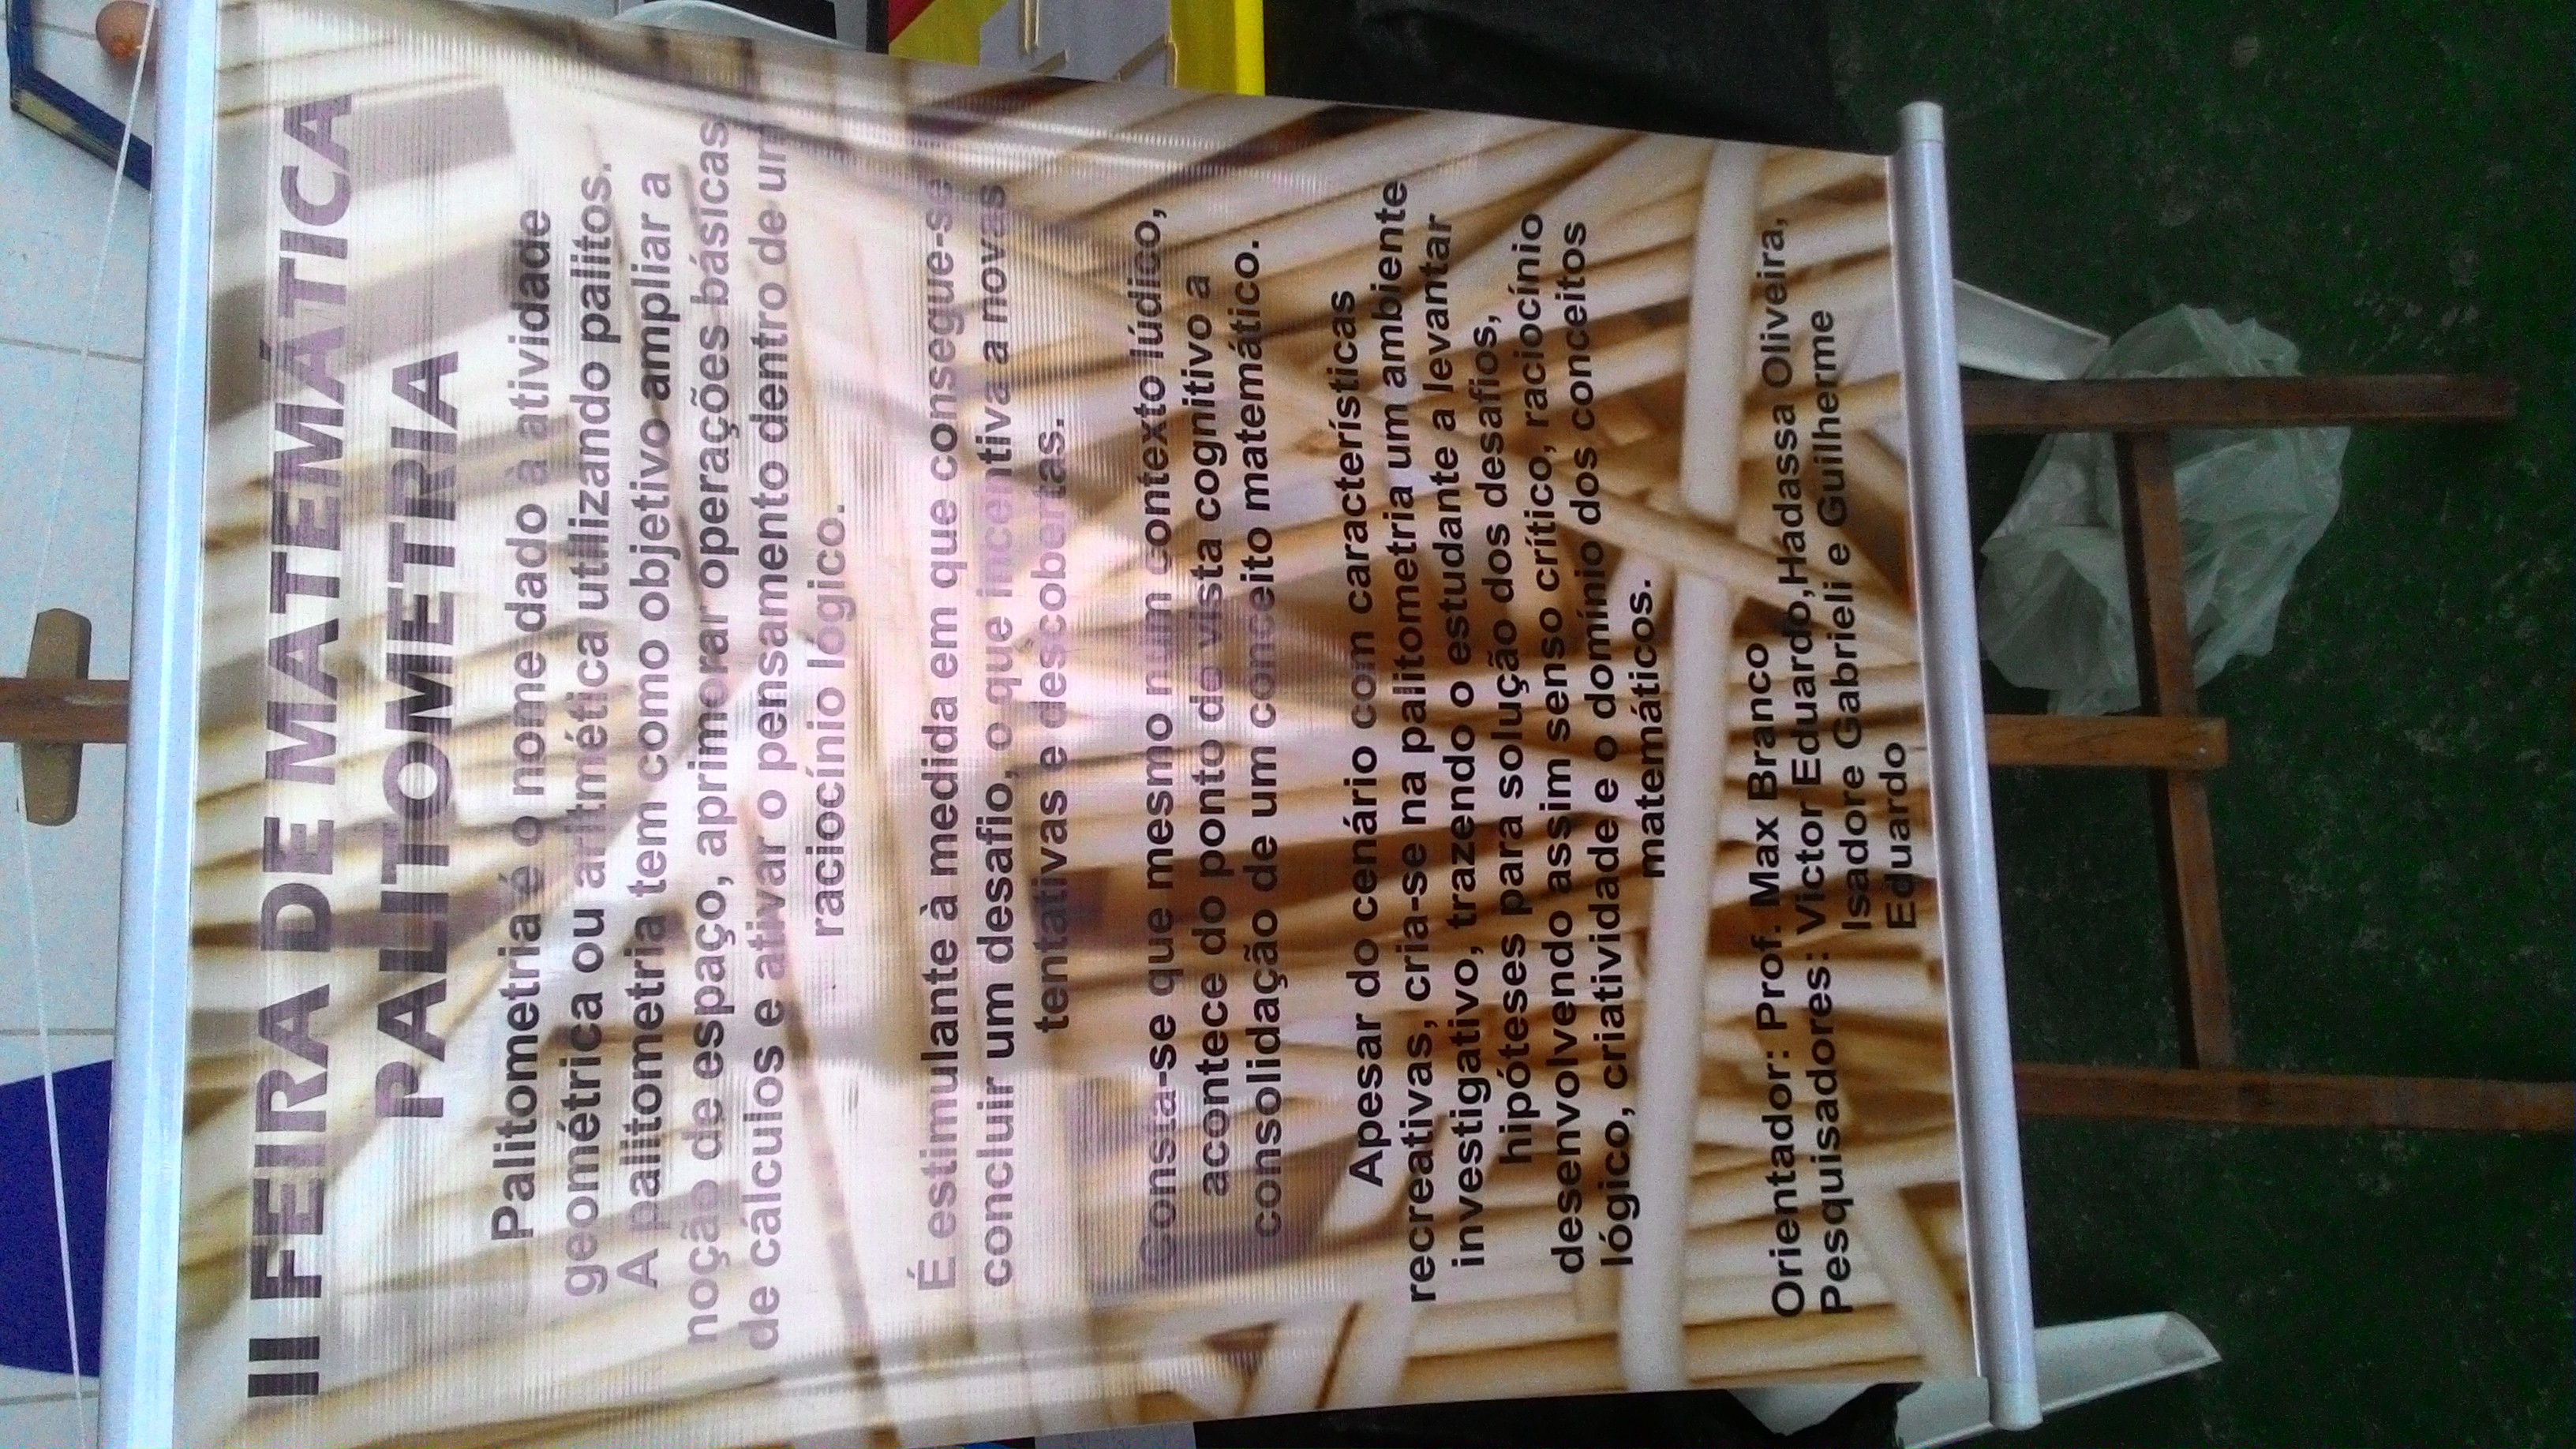 II FEIRA DE MATEMÁTICA
PALITOMETRIA
Palitometria é o nome dado à atividade
geométrica ou aritmética utilizando palitos.
A palitometria tem como objetivo ampliar a
noção de espaço, aprimorar operações básicas
de cálculos e ativar o pensamento dentro de um
raciocínio lógico.
É estimulante à medida em que consegue-se
concluir um desafio, o que incentiva a novas
tentativas e descobertas.
Consta-se que mesmo num contexto lúdico,
acontece do ponto de vista cognitivo a
consolidação de um conceito matemático.
Apesar do cenário com características
recreativas, cria-se na palitometria um ambiente
investigativo, trazendo o estudante a levantar
hipóteses para solução dos desafios,
desenvolvendo assim senso crítico, raciocínio
lógico, criatividade e o domínio dos conceitos
matemáticos.
Orientador: Prof. Max Branco
Pesquisadores: Victor Eduardo,Hadassa Oliveira,
Isadore Gabrieli e Guilherme
Eduardo